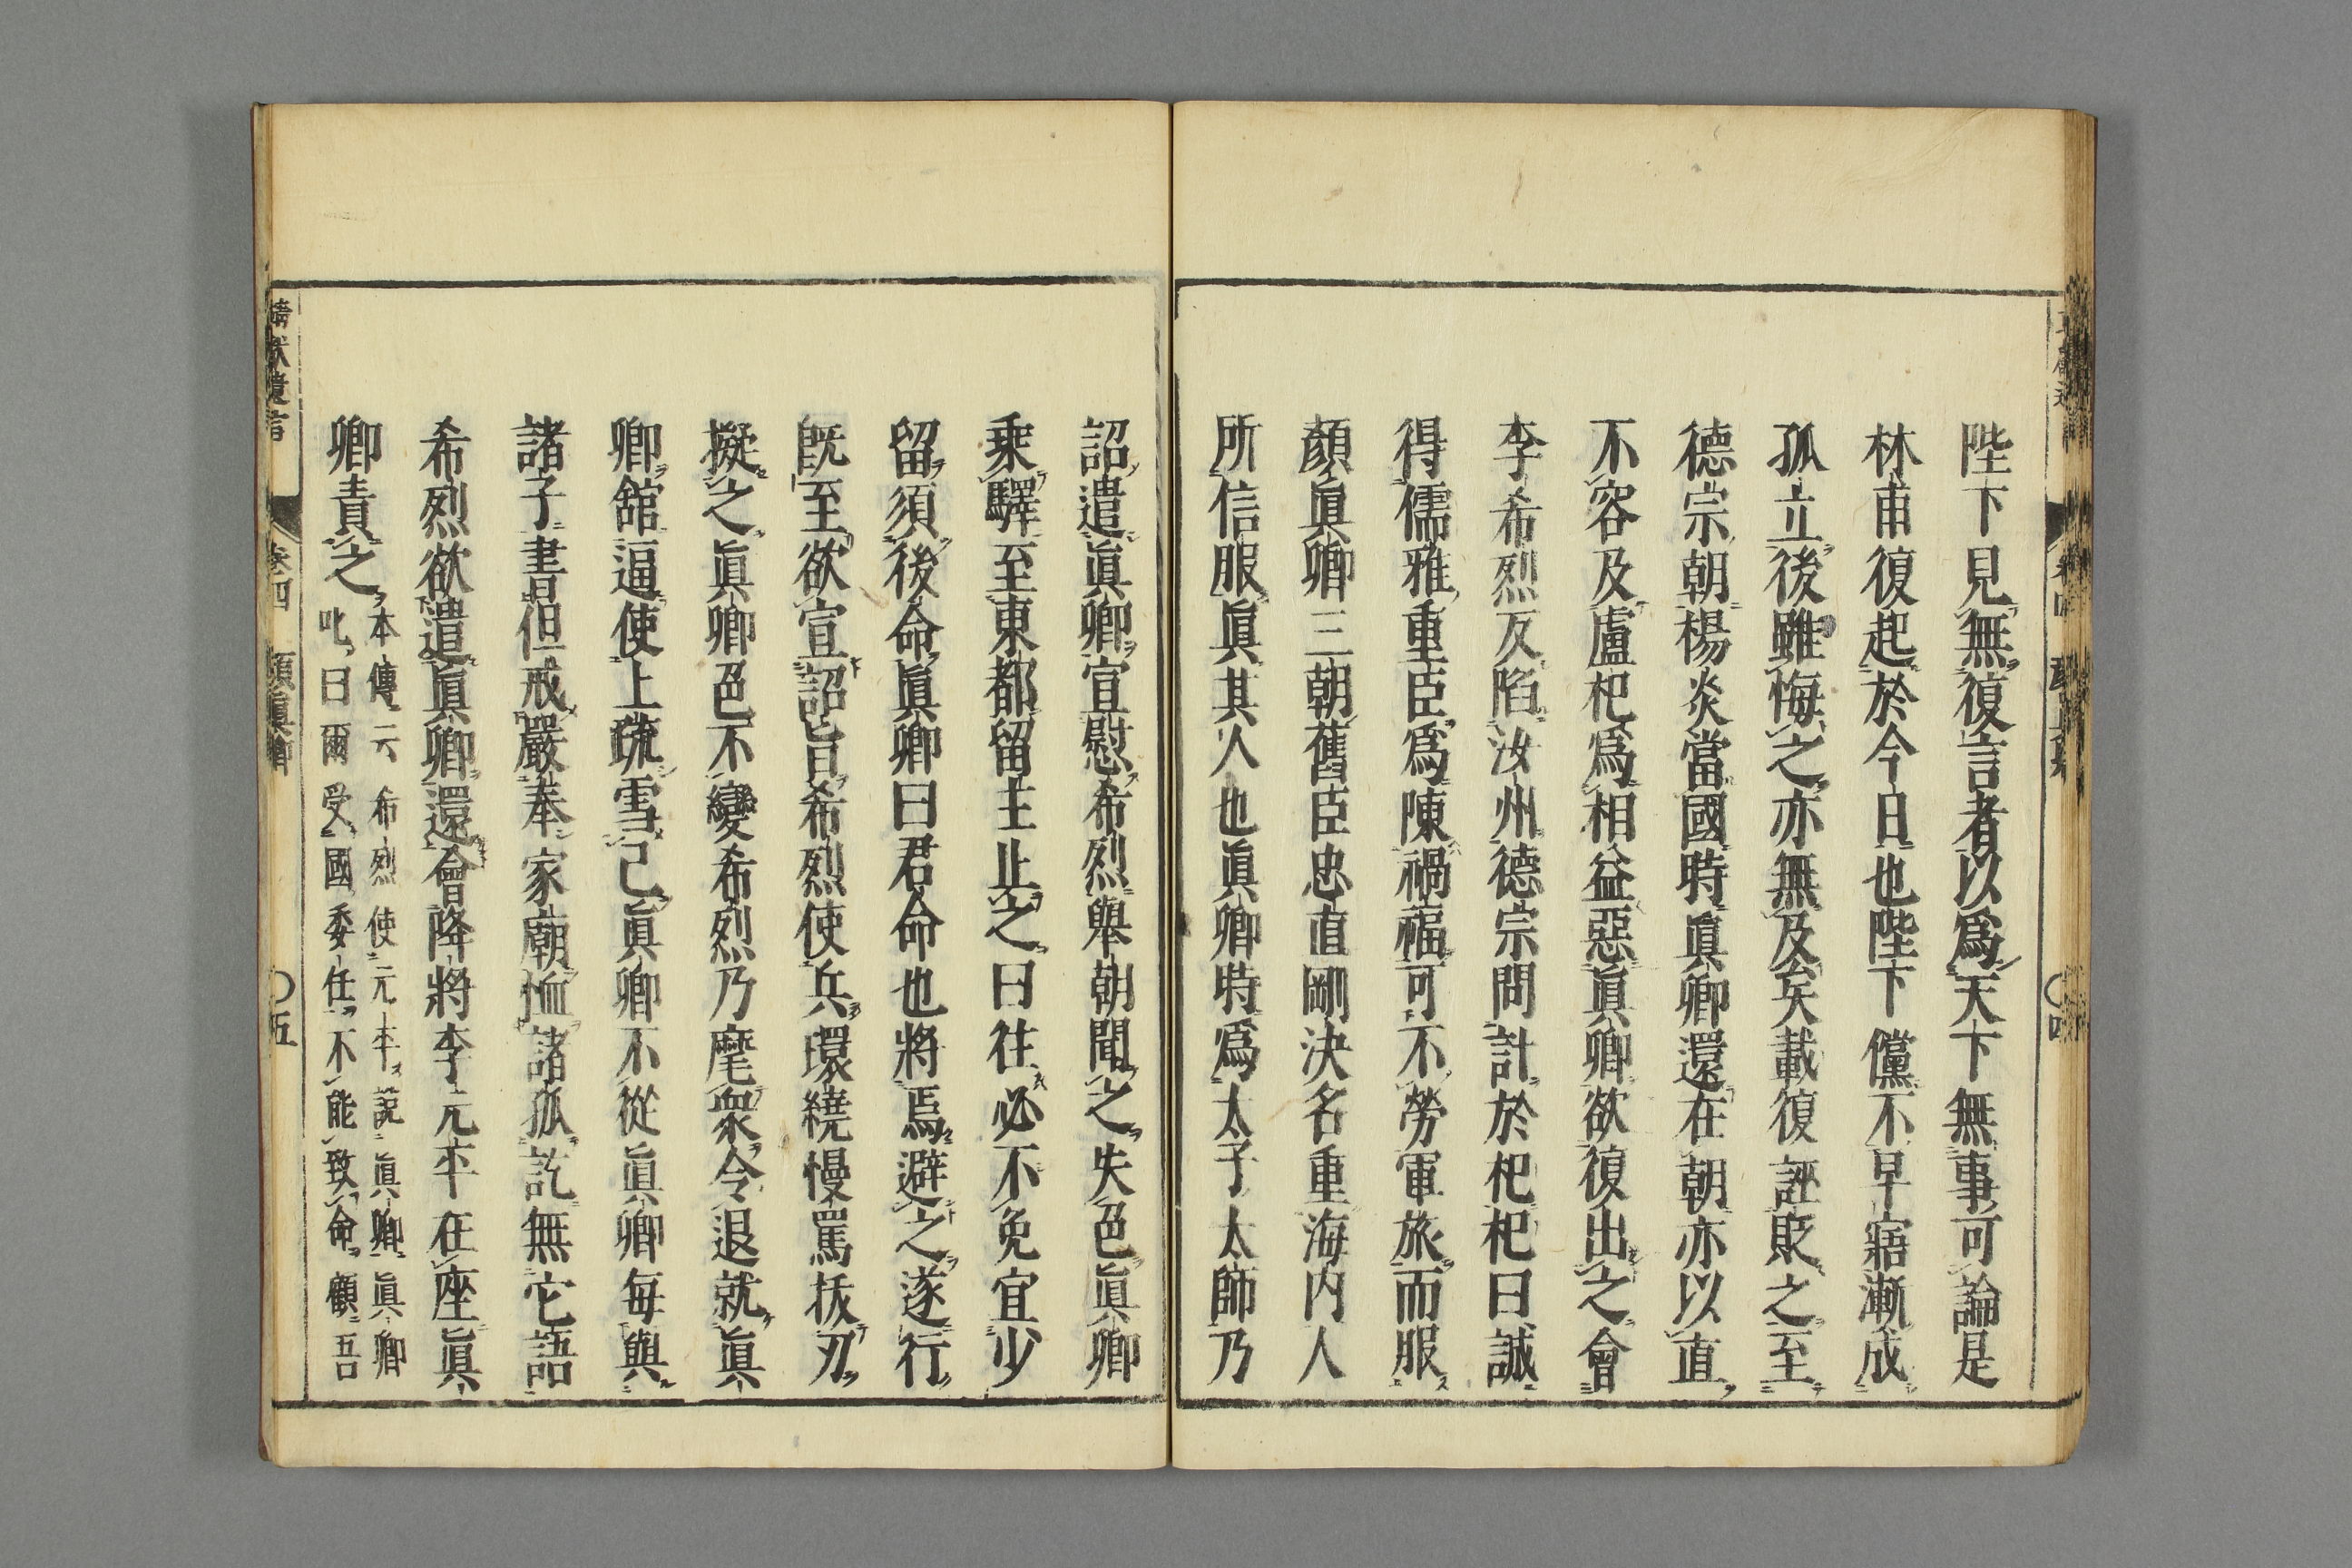 陛下見無復言者以爲天下無事可論是
林甫復起於今日也陛下儻不早寤漸成
孤立後雖悔之亦無及矣載復誣貶之至
德宗朝楊炎當國時眞卿還在朝亦以直
不容及盧杞爲相益惡眞卿欲復出之會
李希烈反陷汝州德宗問計於杞杞曰誠
得儒雅重臣爲陳禍福可不勞軍旅而服
顏眞卿三朝舊臣忠直剛決名重海内人
所信服眞其人也眞卿時爲太子太師乃
詔遣眞卿宣慰希烈舉朝聞之失色眞卿
乘驛至東都留主止之曰往必不免宜少
留須後命眞卿曰君命也將焉避之遂行
旣至欲宣詔旨希烈使兵環繞慢罵拔刃
擬之眞卿色不變希烈乃麾衆令退就眞
卿舘逼使上疏雪己眞卿不從眞卿每與
諸子書但戒嚴奉家廟恤諸孤訖無它語
希烈欲遣眞卿還會降將李元平在座眞
卿責之
本傳云希烈使元平說眞卿眞卿
叱曰爾受國委任不能致命顧吾
靖獻遺言 卷四 顏眞卿 〇五